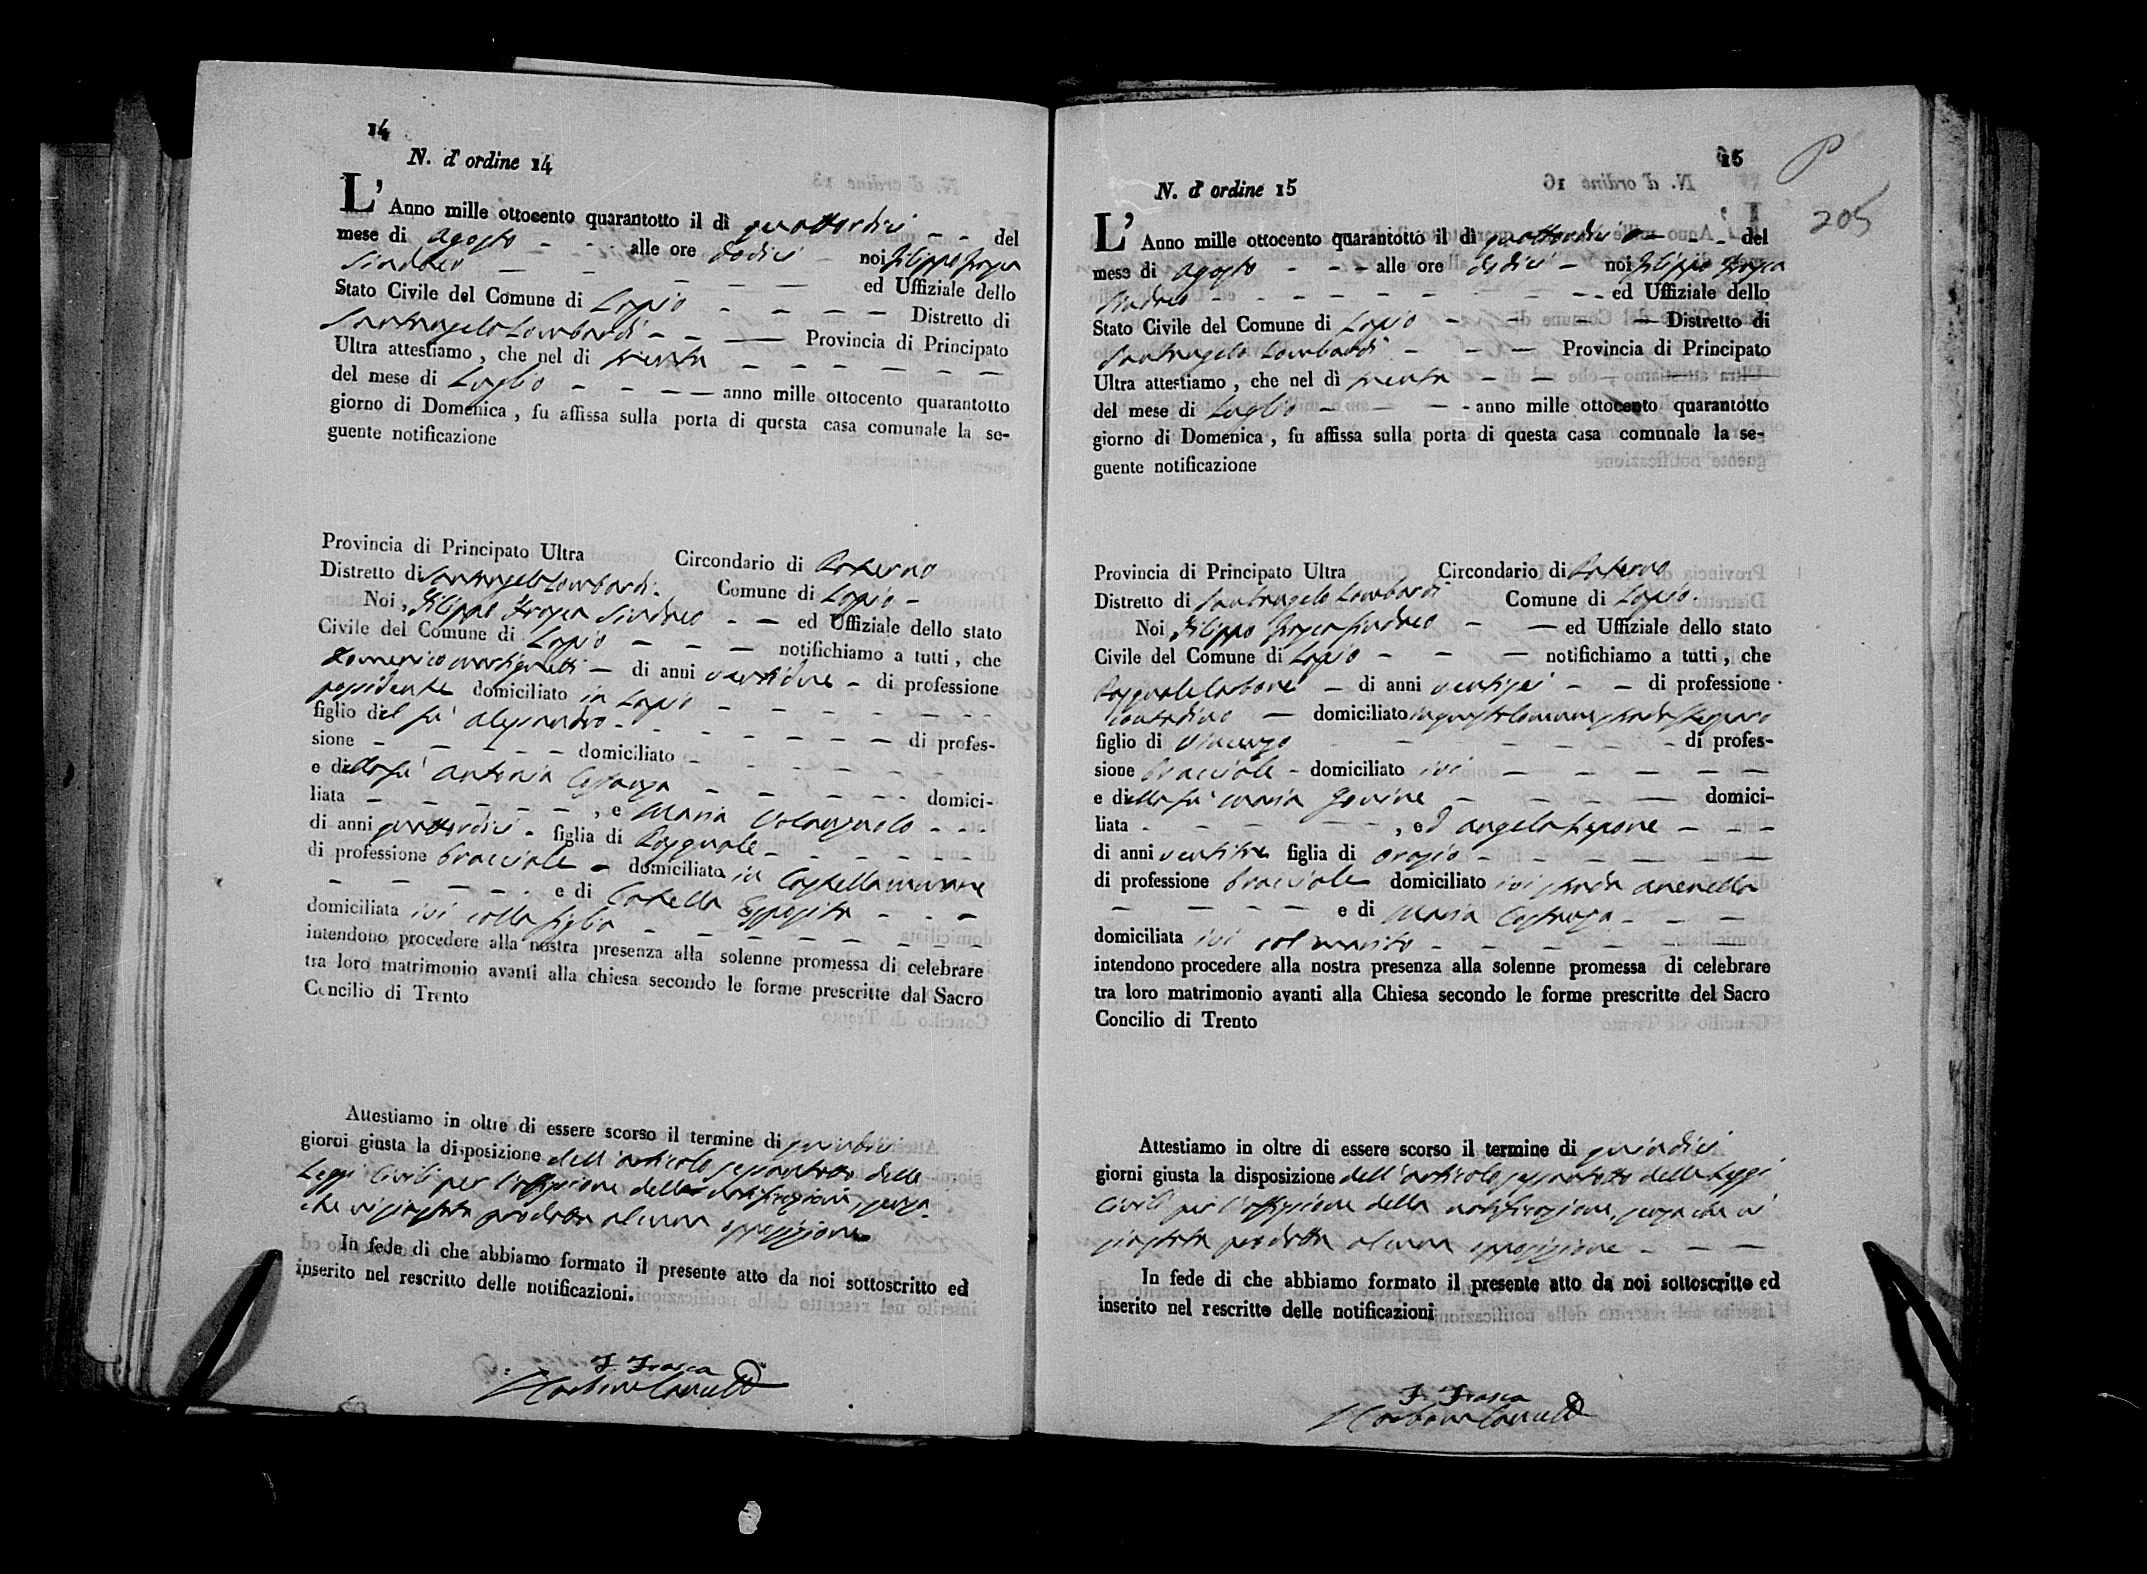 14
N. d' ordine 14
L' Anno mille ottocento quarantotto il dì quattordici - - del
mese di Agosto - - - alle ore dodici - noi Filippo Frasca
Sindaco - - - - - ed Uffiziale dello
Stato Civile del Comune di Lapio - - - - Distretto di
Santangelo Lombardi - - - Provincia di Principato
Ultra attestiamo, che nel dì trenta - - - - - -
del mese di Luglio - - - - anno mille ottocento quarantotto
giorno di Domenica, fu affissa sulla porta di questa casa comunale la se-
guente notificazione
Provincia di Principato Ultra Circondario di Paterno
Distretto di Santangelo Lombardi. Comune di Lapio -
Noi, Filippo Frasca Sindaco - - ed Uffiziale dello stato
Civile del Comune di Lapio - - - notifichiamo a tutti, che
Domenico Martignetti - di anni ventidue - di professione
possidente domiciliato in Lapio - - - - - - -
figlio del fu Alessandro - - - - - - - di profes-
sione - - - - - domiciliato - - - - - -
e della fu Antonia Costanza - - - - - domici-
liata - - - - - , e Maria - - -
di anni quattordici - figlia di Pasquale - - - - - -
di professione bracciale - domiciliata in Castellammare
- - - - e di Catella Esposito - - -
domiciliata ivi colla figlia - - - - - - - -
intendono procedere alla nostra presenza alla solenne promessa di celebrare
tra loro matrimonio avanti alla chiesa secondo le forme prescritte dal Sacro
Concilio di Trento
Attestiamo in oltre di essere scorso il termine di quindici
giorni giusta la disposizione dell'articolo sessantotto delle
Leggi Civili per l'affissione delle notificazioni, senza
che vi sia stata prodotta alcuna opposizione
In fede di che abbiamo formato il presente atto da noi sottoscritto ed
inserito nel rescritto delle notificazioni.
F. Frasca
Carbone
15
P
205
N. d' ordine 15
L' Anno mille ottocento quarantotto il dì quattordici - - - del
mese di Agosto - - - alle ore dodici - noi Filippo Frasca
Sindaco - - - - - - - - ed Uffiziale dello
Stato Civile del Comune di Lapio - - - - Distretto di
Santangelo Lombardi - - - Provincia di Principato
Ultra attestiamo, che nel dì trenta - - - - -
del mese di Luglio - - - - anno mille ottocento quarantotto
giorno di Domenica, fu affissa sulla porta di questa casa comunale la se-
guente notificazione
Provincia di Principato Ultra Circondario di Paterno
Distretto di Santangelo Lombardi Comune di Lapio.
Noi Filippo Frasca Sindaco - - ed Uffiziale dello stato
Civile del Comune di Lapio - - - notifichiamo a tutti, che
Pasquale Carbone - di anni ventisei - - di professione
contadino - domiciliato in questo Comune strada
figlio di Vincenzo - - - - - - di profes-
sione bracciale - domiciliato ivi - - - - -
e della fu Maria Iovine - - - - domici-
liata - - - - - , ed Angela Lepore - - -
di anni ventitre figlia di Orazio - - - - - -
di professione bracciale domiciliato ivi strada Arenella
- - - - - e di Maria Costanza - - -
domiciliata ivi col marito - - - - - - -
intendono procedere alla nostra presenza alla solenne promessa di celebrare
tra loro matrimonio avanti alla Chiesa secondo le forme prescritte del Sacro
Concilio di Trento
Attestiamo in oltre di essere scorso il termine di quindici
giorni giusta la disposizione dell'articolo sessantotto delle Leggi
Civili per l'affissione della notificazione, senza che vi
sia stata prodotta alcuna opposizione - - -
In fede di che abbiamo formato il presente atto da noi sottoscritto ed
inserito nel rescritto delle notificazioni
F. Frasca
Carbone